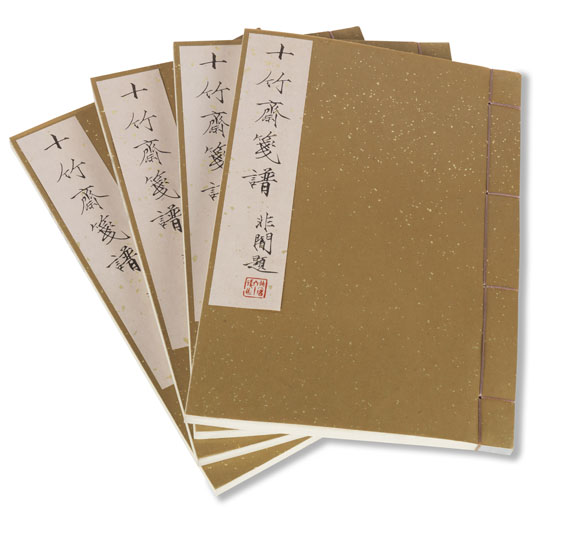 十竹齋箋譜
十竹齋箋
十竹齋箋
十竹齋箋譜 非闇題